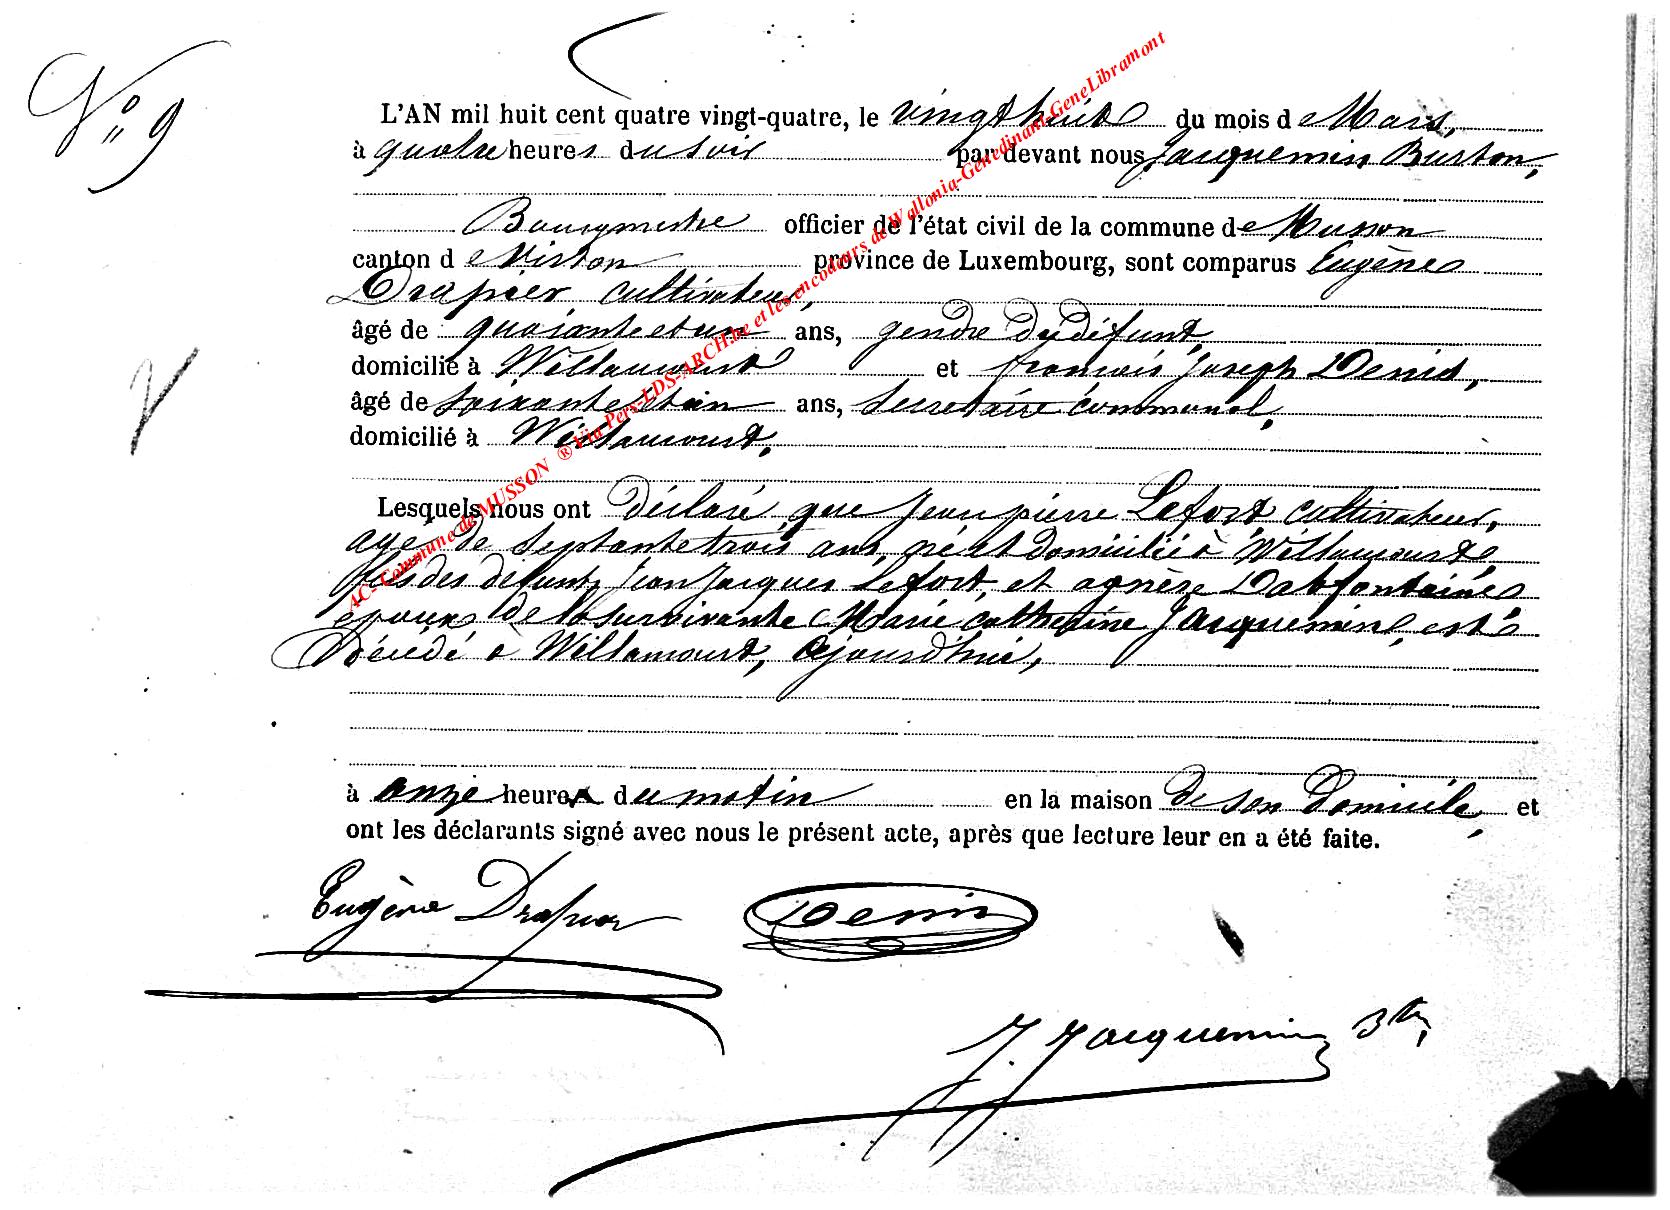 N° 9
L'AN mil huit cent quatre vingt-quatre, le vingt huit du mois de Mars,
à quatre heures du soir par devant nous Jacquemin Burton,
Bourgmestre officier de l'état civil de la commune de Musson
canton de Virton province de Luxembourg, sont comparus Eugène
Drapier cultivateur,
âgé de quarante et un ans, gendre du défunt,
domicilié à Willancourt et francois Joseph Denis,
âgé de soixante et ans, Secretaire communal,
domicilié à Willancourt,
Lesquels nous ont déclaré, que Jean pierre Lefort, cultivateur,
age de septante trois ans, né et domicilié à Willancourt,
fils des défunts Jean Jacques Lefort, et agnèse
epoux de la survivante Marie catherine Jacquemin, est
décédé à Willancourt, cejourd'hui,
à onze heures du matin en la maison de son Domicile, et
ont les déclarants signé avec nous le présent acte, après que lecture leur en a été faite.
Eugène Drapier Denis
J. Jacquemin Btn,
AC- Commune de MUSSON ® Via Pers-LDS-ARCH.be et les encodeurs de Wallonia-Genedinant-GeneLibramont